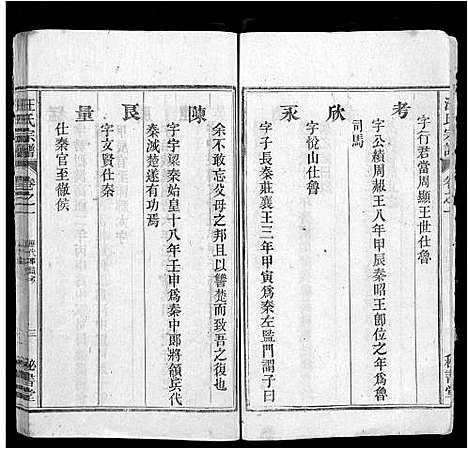 汪氏宗譜
卷之一
考
字行君當周顯王世仕魯
欣
字公績周赧王八年甲辰秦昭王卽位之年爲魯
司馬
永
字悅山仕魯
字子長秦莊襄王三年甲寅爲秦左監門謂子曰
余不敢忘父母之邦且以讐楚而致吾之復也
陳
字宇梁秦始皇十八年壬申爲秦中郎將領兵代
秦滅楚遂有功焉
良
字文賢仕秦
量
仕秦官至徹侯
汪氏宗譜
卷之一
三
秘書堂